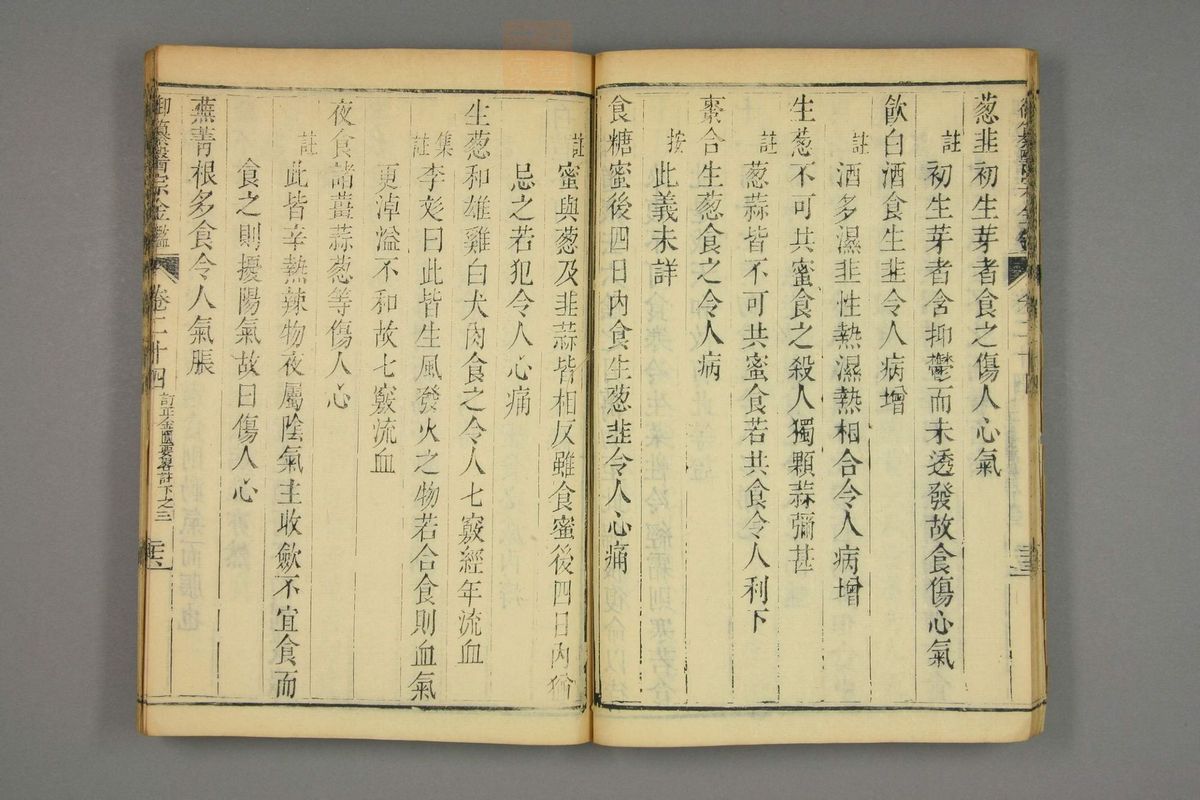 葱韭初生芽者食之傷人心氣
註 初生芽者含抑鬱而未透發故食傷心氣
飲白酒食生韭令人病增
註 酒多濕韭性熱濕熱相合令人病增
生葱不可共蜜食之殺人獨顆蒜彌甚
註 葱蒜皆不可共蜜食若共食令人利下
棗合生葱食之令人病
按 此義未詳
食糖蜜後四日內食生葱韭令人心痛
註 蜜與葱及韭蒜皆相反雖食蜜後四日內猶
忌之若犯令人心痛
生葱和雄雞白犬肉食之令人七竅經年流血
集註 李彣曰此皆生風發火之物若合食則血氣
更淖溢不和故七竅流血
夜食諸薑蒜葱等傷人心
註 此皆辛熱辣物夜屬陰氣主收歛不宜食而
食之則擾陽氣故曰傷人心
蕪菁根多食令人氣脹
御纂醫宗金鑑 卷二十四 訂正金匱要畧註下之三